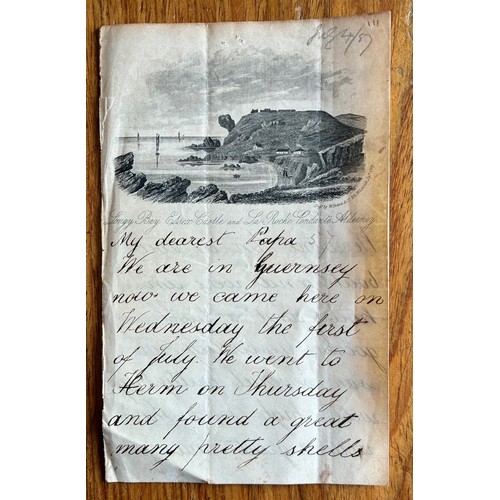 July 4/57
Longy Bay, Essex Castle and La Roche Pendante Alderney
My dearest Papa
We are in Guernsey
now we came here on
Wednesday the first
of July. We went to
Herm on Thursday
and found a great
many pretty shells